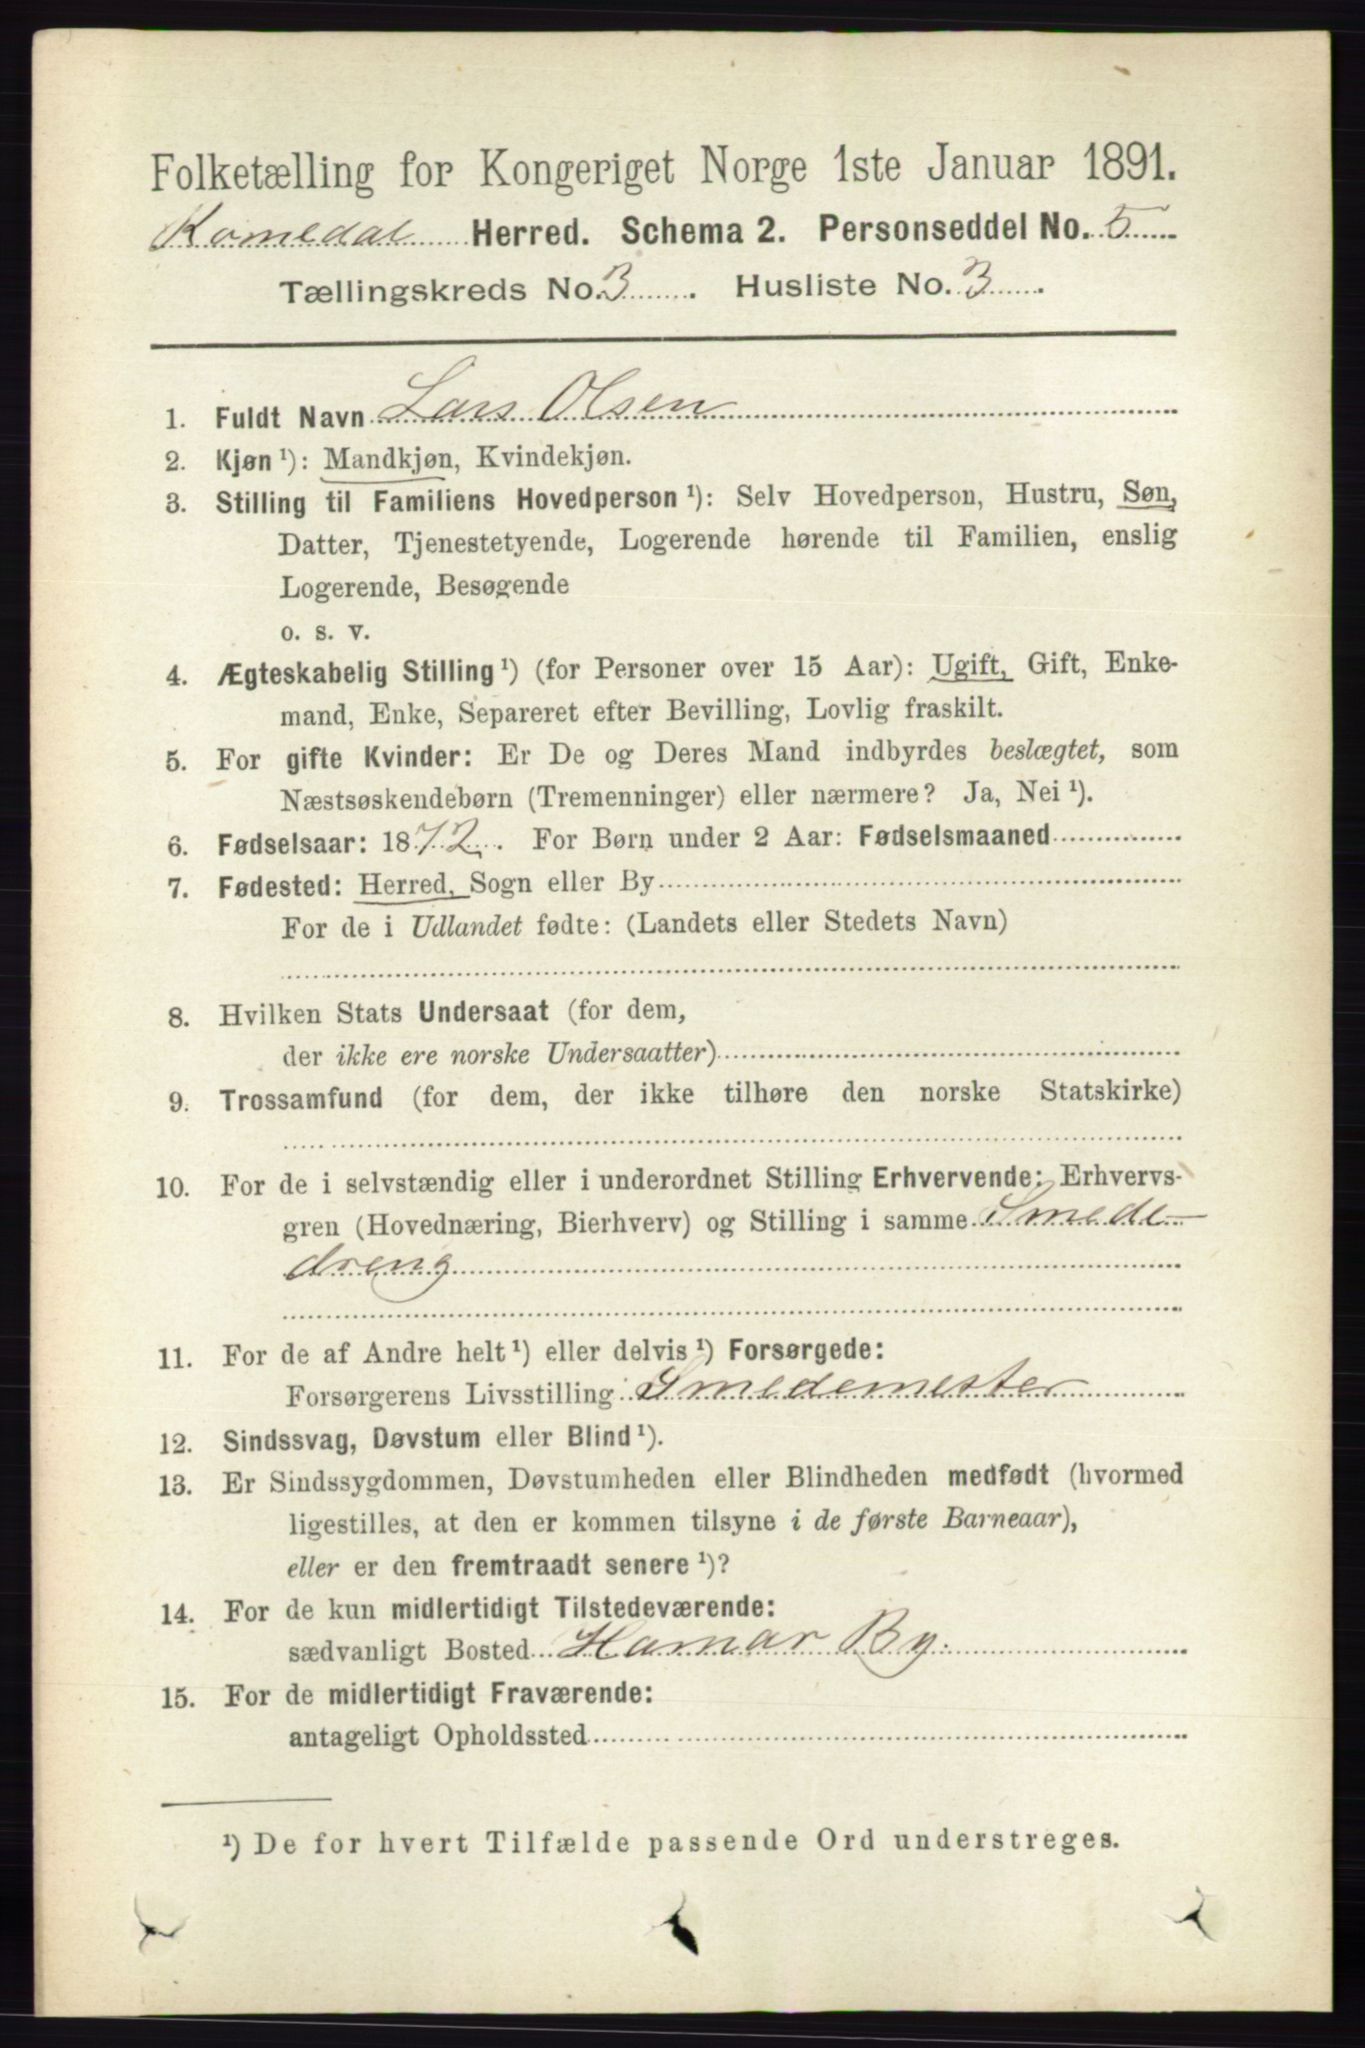 Folketælling for Kongeriget Norge 1ste Januar 1891.
Romedal Herred. Schema 2. Personseddel No. 5
Tællingskreds No. 3. Husliste No. 3.
1. Fuldt Navn Lars Olsen
2. Kjøn ¹): Mandkjøn, Kvindekjøn.
3. Stilling til Familiens Hovedperson ¹): Selv Hovedperson, Hustru, Søn,
Datter, Tjenestetyende, Logerende hørende til Familien, enslig
Logerende, Besøgende
o. s. v.
4. Ægteskabelig Stilling ¹) (for Personer over 15 Aar): Ugift, Gift, Enke-
mand, Enke, Separeret efter Bevilling, Lovlig fraskilt.
5. For gifte Kvinder: Er De og Deres Mand indbyrdes beslægtet, som
Næstsøskendebørn (Tremenninger) eller nærmere? Ja, Nei ¹).
6. Fødselsaar: 1872. For Børn under 2 Aar: Fødselsmaaned
7. Fødested: Herred, Sogn eller By
For de i Udlandet fødte: (Landets eller Stedets Navn)
8. Hvilken Stats Undersaat (for dem,
der ikke ere norske Undersaatter)
9. Trossamfund (for dem, der ikke tilhøre den norske Statskirke)
10. For de i selvstændig eller i underordnet Stilling Erhvervende: Erhvervs-
gren (Hovednæring, Bierhverv) og Stilling i samme Smede-
dreng
11. For de af Andre helt ¹) eller delvis ¹) Forsørgede:
Forsørgerens Livsstilling Smedemester
12. Sindssvag, Døvstum eller Blind ¹).
13. Er Sindssygdommen, Døvstumheden eller Blindheden medfødt (hvormed
ligestilles, at den er kommen tilsyne i de første Barneaar),
eller er den fremtraadt senere ¹)?
14. For de kun midlertidigt Tilstedeværende:
sædvanligt Bosted Hamar By.
15. For de midlertidigt Fraværende:
antageligt Opholdssted
¹) De for hvert Tilfælde passende Ord understreges.